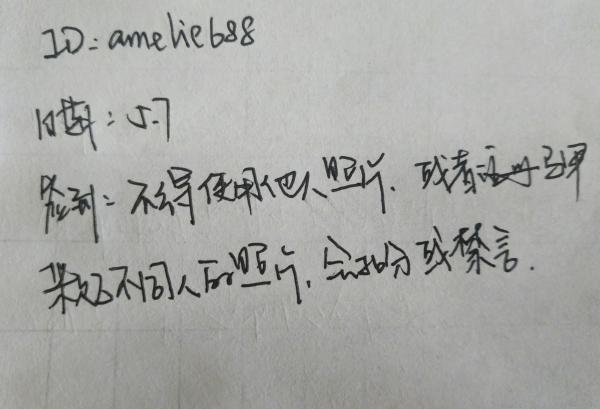 ID: amelie688
日期: 5.7
签到: 不得使用他人照片. 或者引用
不同人的照片, 会扣分或禁言.